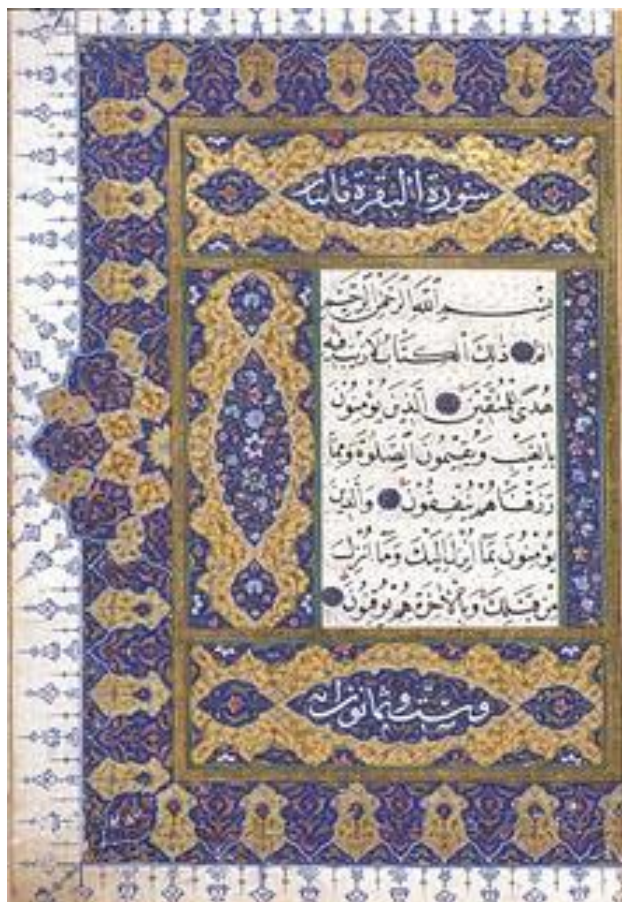 سورة البقرة مائتان
بسم الله الرحمن الرحيم
الم ذلك الكتاب لا ريب فيه
هدى للمتقين الذين يؤمنون
بالغيب ويقيمون الصلوة ومما
رزقناهم ينفقون والذين
يؤمنون بما انزل اليك وما انزل
من قبلك وبالآخرة هم يوقنون
وست وثمانون